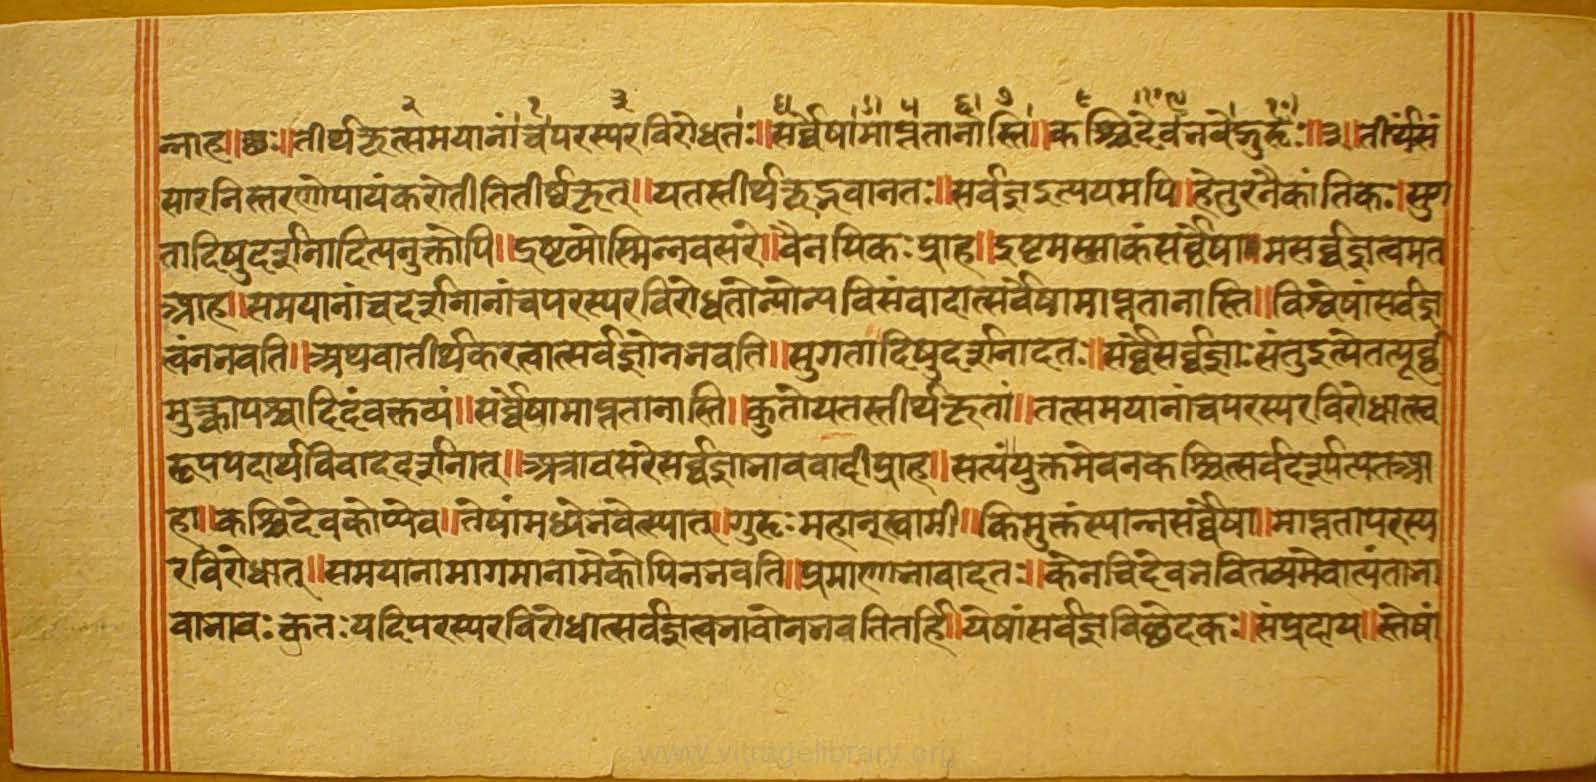 २ १ ३ ४ ५ ६ ७ ९
न्नाह॥छः॥तीर्थकृत्समयानां चपरस्परविरोधतः॥सर्व्वेषामाप्ततानास्ति॥कश्चिदेवनवेद्गुरुः॥३॥तीर्थंसं
सारनिस्तरणोपायंकरोतीतितीर्थकृत्॥यतस्तीर्थकृद्भवानतः॥सर्वज्ञइत्ययमपि॥हेतुरनैकांतिकः॥सुग
तादिषुदर्शनादित्यनुक्तोपि॥द्रष्टव्योस्मिन्नवसरे॥वैनयिकःप्राह॥इष्टमस्माकंसर्व्वेषा॥मसर्व्वज्ञत्वमत
आह॥समयानांचदर्शनानांचपरस्परविरोधतोन्योन्यविसंवादात्सर्वेषामाप्ततानास्ति॥विश्वेषांसर्वज्ञ
त्वंनभवति॥अथवातीर्थकरत्वात्सर्वज्ञोनभवति॥सुगतादिषुदर्शनादतः॥सर्व्वेसर्व्वज्ञाःसंतुइत्येतत्पूर्व्व
मुक्त्वापश्चादिदंवक्तव्यं॥सर्व्वेषामाप्ततानास्ति॥कुतोयतस्तीर्थकृतां॥तत्समयानांचपरस्परविरोधात्स्व
रूपपदार्थविवाददर्शनात्॥अत्रावसरेसर्व्वज्ञाभाववादीप्राह॥सत्यंयुक्तमेवनकश्चित्सर्वदर्श्यत्यतआ
हा॥कश्चिदेवकोप्येव॥तेषांमध्येभवेत्स्यात्॥गुरुःमहान्स्वामी॥किमुक्तंस्यान्नसर्व्वेषा॥माप्ततापरस्प
रविरोधात्॥समयानामागमानामेकोपिनभवति॥प्रमाणाभावादतः॥केनचिदेवभवितव्यमेवात्यंताभा
वाभावःकुतःयदिपरस्परविरोधात्सर्वज्ञत्वभावोनभवतितर्हि॥येषांसर्वज्ञविछेदकः॥संप्रदाय॥स्तेषां
www.vitragelibrary.org